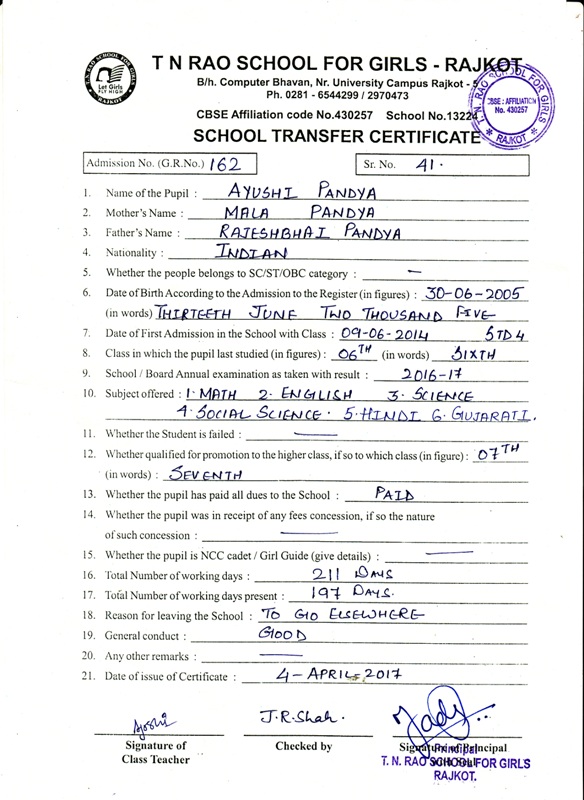 T. N. RAO SCHOOL FOR GIRLS
Let Girls
FLY HIGH
RAJKOT
T N RAO SCHOOL FOR GIRLS - RAJKOT
B/h. Computer Bhavan, Nr. University Campus Rajkot -
Ph. 0281 - 6544299 / 2970473
CBSE Affiliation code No.430257 School No.13224
T. N. RAO SCHOOL FOR GIRLS
CBSE : AFFILIATION
No. 430257
* RAJKOT *
SCHOOL TRANSFER CERTIFICATE
Admission No. (G.R.No.) 162 Sr. No. 41.
1. Name of the Pupil : AYUSHI PANDYA
2. Mother's Name : MALA PANDYA
3. Father's Name : RAJESHBHAI PANDYA
4. Nationality : INDIAN
5. Whether the people belongs to SC/ST/OBC category : —
6. Date of Birth According to the Admission to the Register (in figures) : 30-06-2005
(in words) THIRTEETH JUNE TWO THOUSAND FIVE
7. Date of First Admission in the School with Class : 09-06-2014 STD 4
8. Class in which the pupil last studied (in figures) : 06TH (in words) SIXTH
9. School / Board Annual examination as taken with result : 2016-17
10. Subject offered : 1. MATH 2. ENGLISH 3. SCIENCE
4. SOCIAL SCIENCE. 5. HINDI 6. GUJARATI.
11. Whether the Student is failed : —
12. Whether qualified for promotion to the higher class, if so to which class (in figure) : 07TH
(in words) : SEVENTH
13. Whether the pupil has paid all dues to the School : PAID
14. Whether the pupil was in receipt of any fees concession, if so the nature
of such concession : —
15. Whether the pupil is NCC cadet / Girl Guide (give details) : —
16. Total Number of working days : 211 DAYS
17. Total Number of working days present : 197 DAYS.
18. Reason for leaving the School : TO GO ELSEWHERE
19. General conduct : GOOD
20. Any other remarks : —
21. Date of issue of Certificate : 4-APRIL, 2017
J.R.Shah.
Signature of Checked by Signature of Principal
Class Teacher
Principal
T. N. RAO SCHOOL FOR GIRLS
RAJKOT.